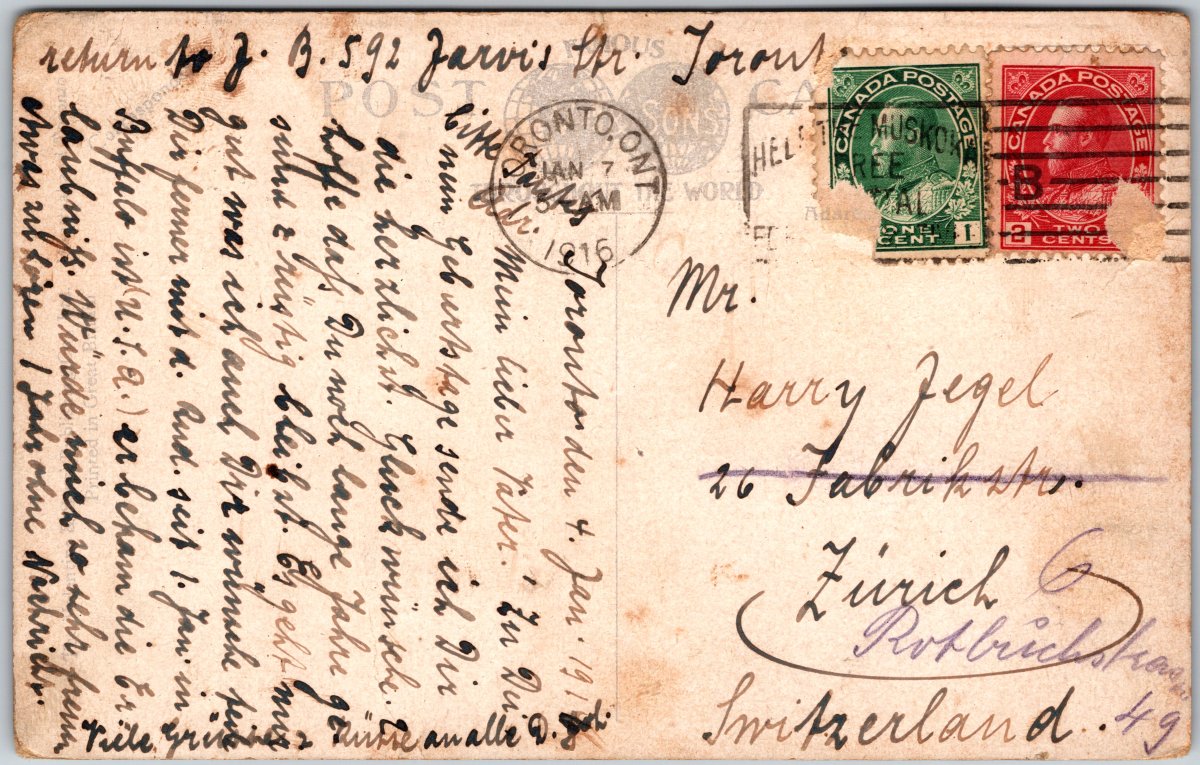 return to J. B. 592 Jarvis Str. Toront
FAMOUS
POST CA
THROUGHOUT THE WORLD
SONS
TORONTO, ONT
JAN 7
5 - AM
1916
HELP MUSKOK
FREE
TAL
CANADA POSTAGE
ONE CENT 1
CANADA POSTAGE
B
2 TWO CENTS
Mr.
Harry Jegel
26 Fabrikstr.
Zürich 6
Rotbuchstrasse
Switzerland. 49
Toronto den 4. Jan. 191
Mein lieber Vater! Zu Dei
nem Geburtstage sende ich Dir
die herzlichst. Glückwünsche.
hoffe daß Du noch lange Jahre ge
sund & rüstig bleibst. Es geht mir
gut was ich auch Dir wünsche
Dir ferner mit d. seit 1. Jan. in
Buffalo ist (U.S.A.) er bekam die Er
laubniß. Würde mich so sehr freuen
etwas zu hören 1 Jahr ohne Nachricht.
Viele Grüsse & Küsse an alle D.
bitte
Adr.
Printed in Great